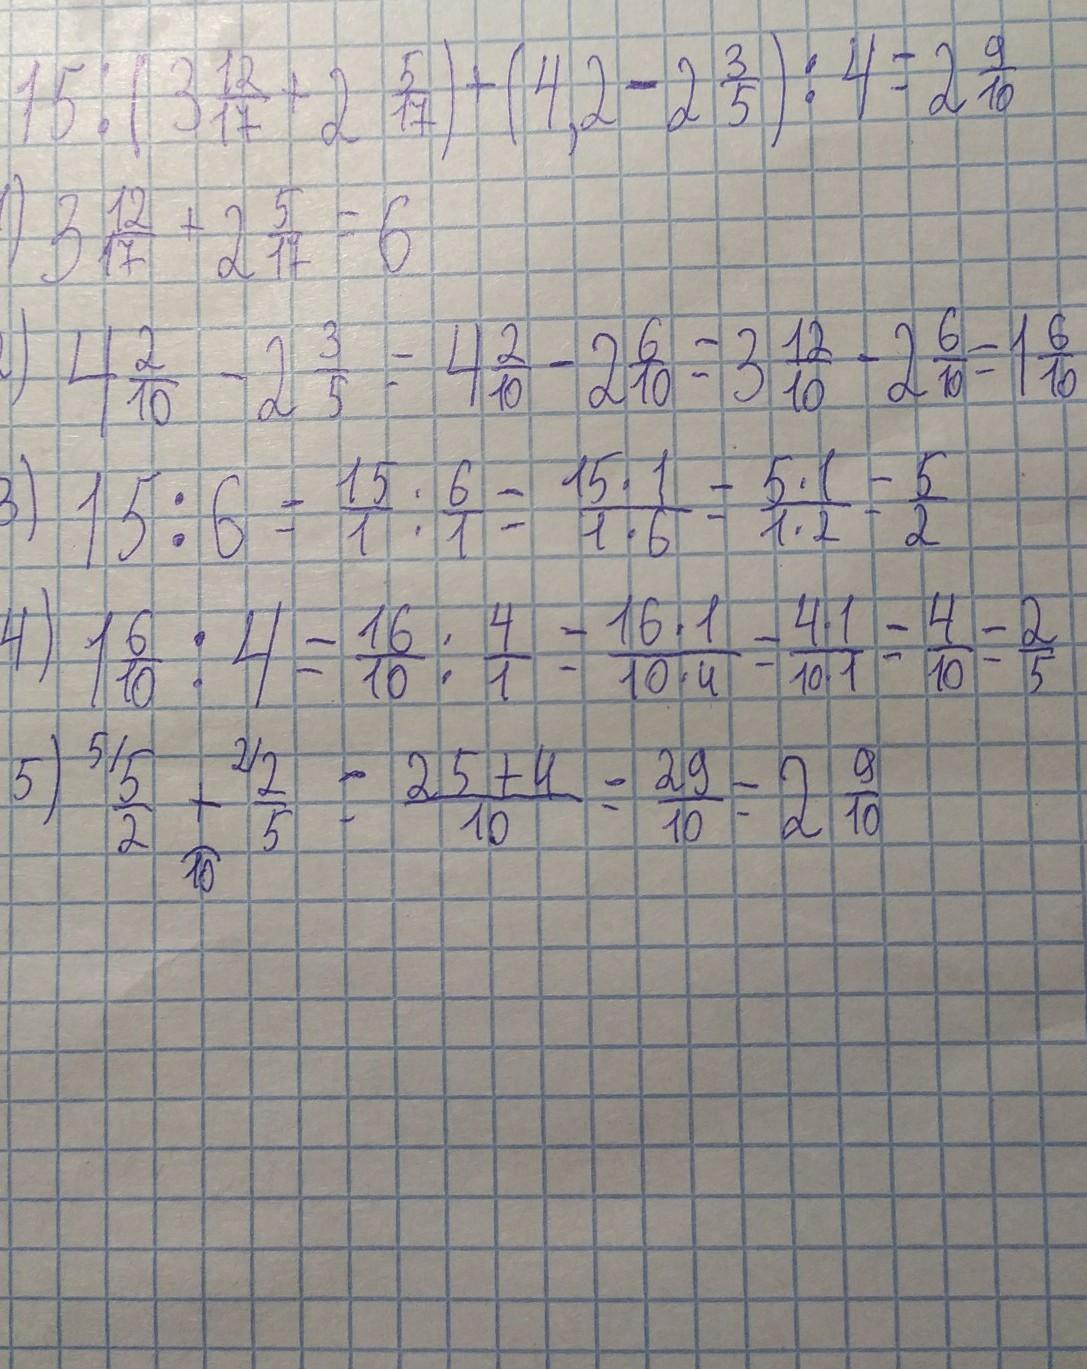 15:(3 12/17 + 2 5/17)+(4,2 - 2 3/5):4 = 2 9/10
1) 3 12/17 + 2 5/17 = 6
2) 4 2/10 - 2 3/5 = 4 2/10 - 2 6/10 = 3 12/10 - 2 6/10 = 1 6/10
3) 15:6 = 15/1 : 6/1 = 15·1/1·6 = 5·1/1·2 = 5/2
4) 1 6/10 : 4 = 16/10 : 4/1 = 16·1/10·4 = 4·1/10·1 = 4/10 = 2/5
5) 5/ 5/2 + 2/ 2/5 = 25+4/10 = 29/10 = 2 9/10
10